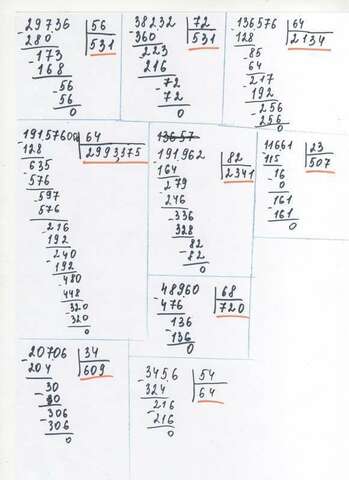 -29736 56
280 531
-173
168
-56
56
0
38232 72
-360 531
223
216
-72
72
0
-136576 64
128 2134
-85
64
-217
192
-256
256
0
191576 64
-128 2993,375
-635
-576
-597
576
-216
192
-240
-192
-480
448
-320
320
0
191962 82
-164 2341
-279
-246
-336
328
-82
-82
0
11661 23
-115 507
-16
0
-161
161
0
48960 68
-476 720
-136
-136
0
-20706 34
204 609
-30
-306
-306
0
-3456 54
324 64
-216
-216
0